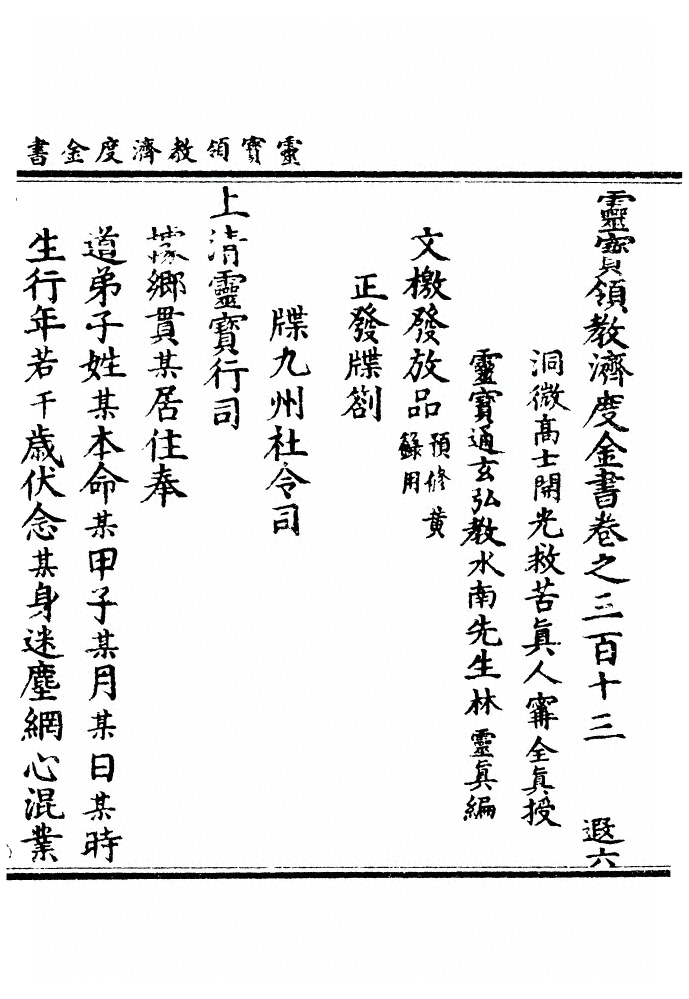 靈寶領教濟度金書
靈寶領教濟度金書卷之三百十三 遐六
洞微高士開光救苦眞人甯全眞授
靈寶通玄弘教水南先生林靈眞編
文檄發放品 預修黃籙用
正發牒劄
牒九州社令司
上清靈寶行司
據鄉貫某居住奉
道弟子姓某本命某甲子某月某日某時
生行年若干歲伏念某身迷塵網心混業